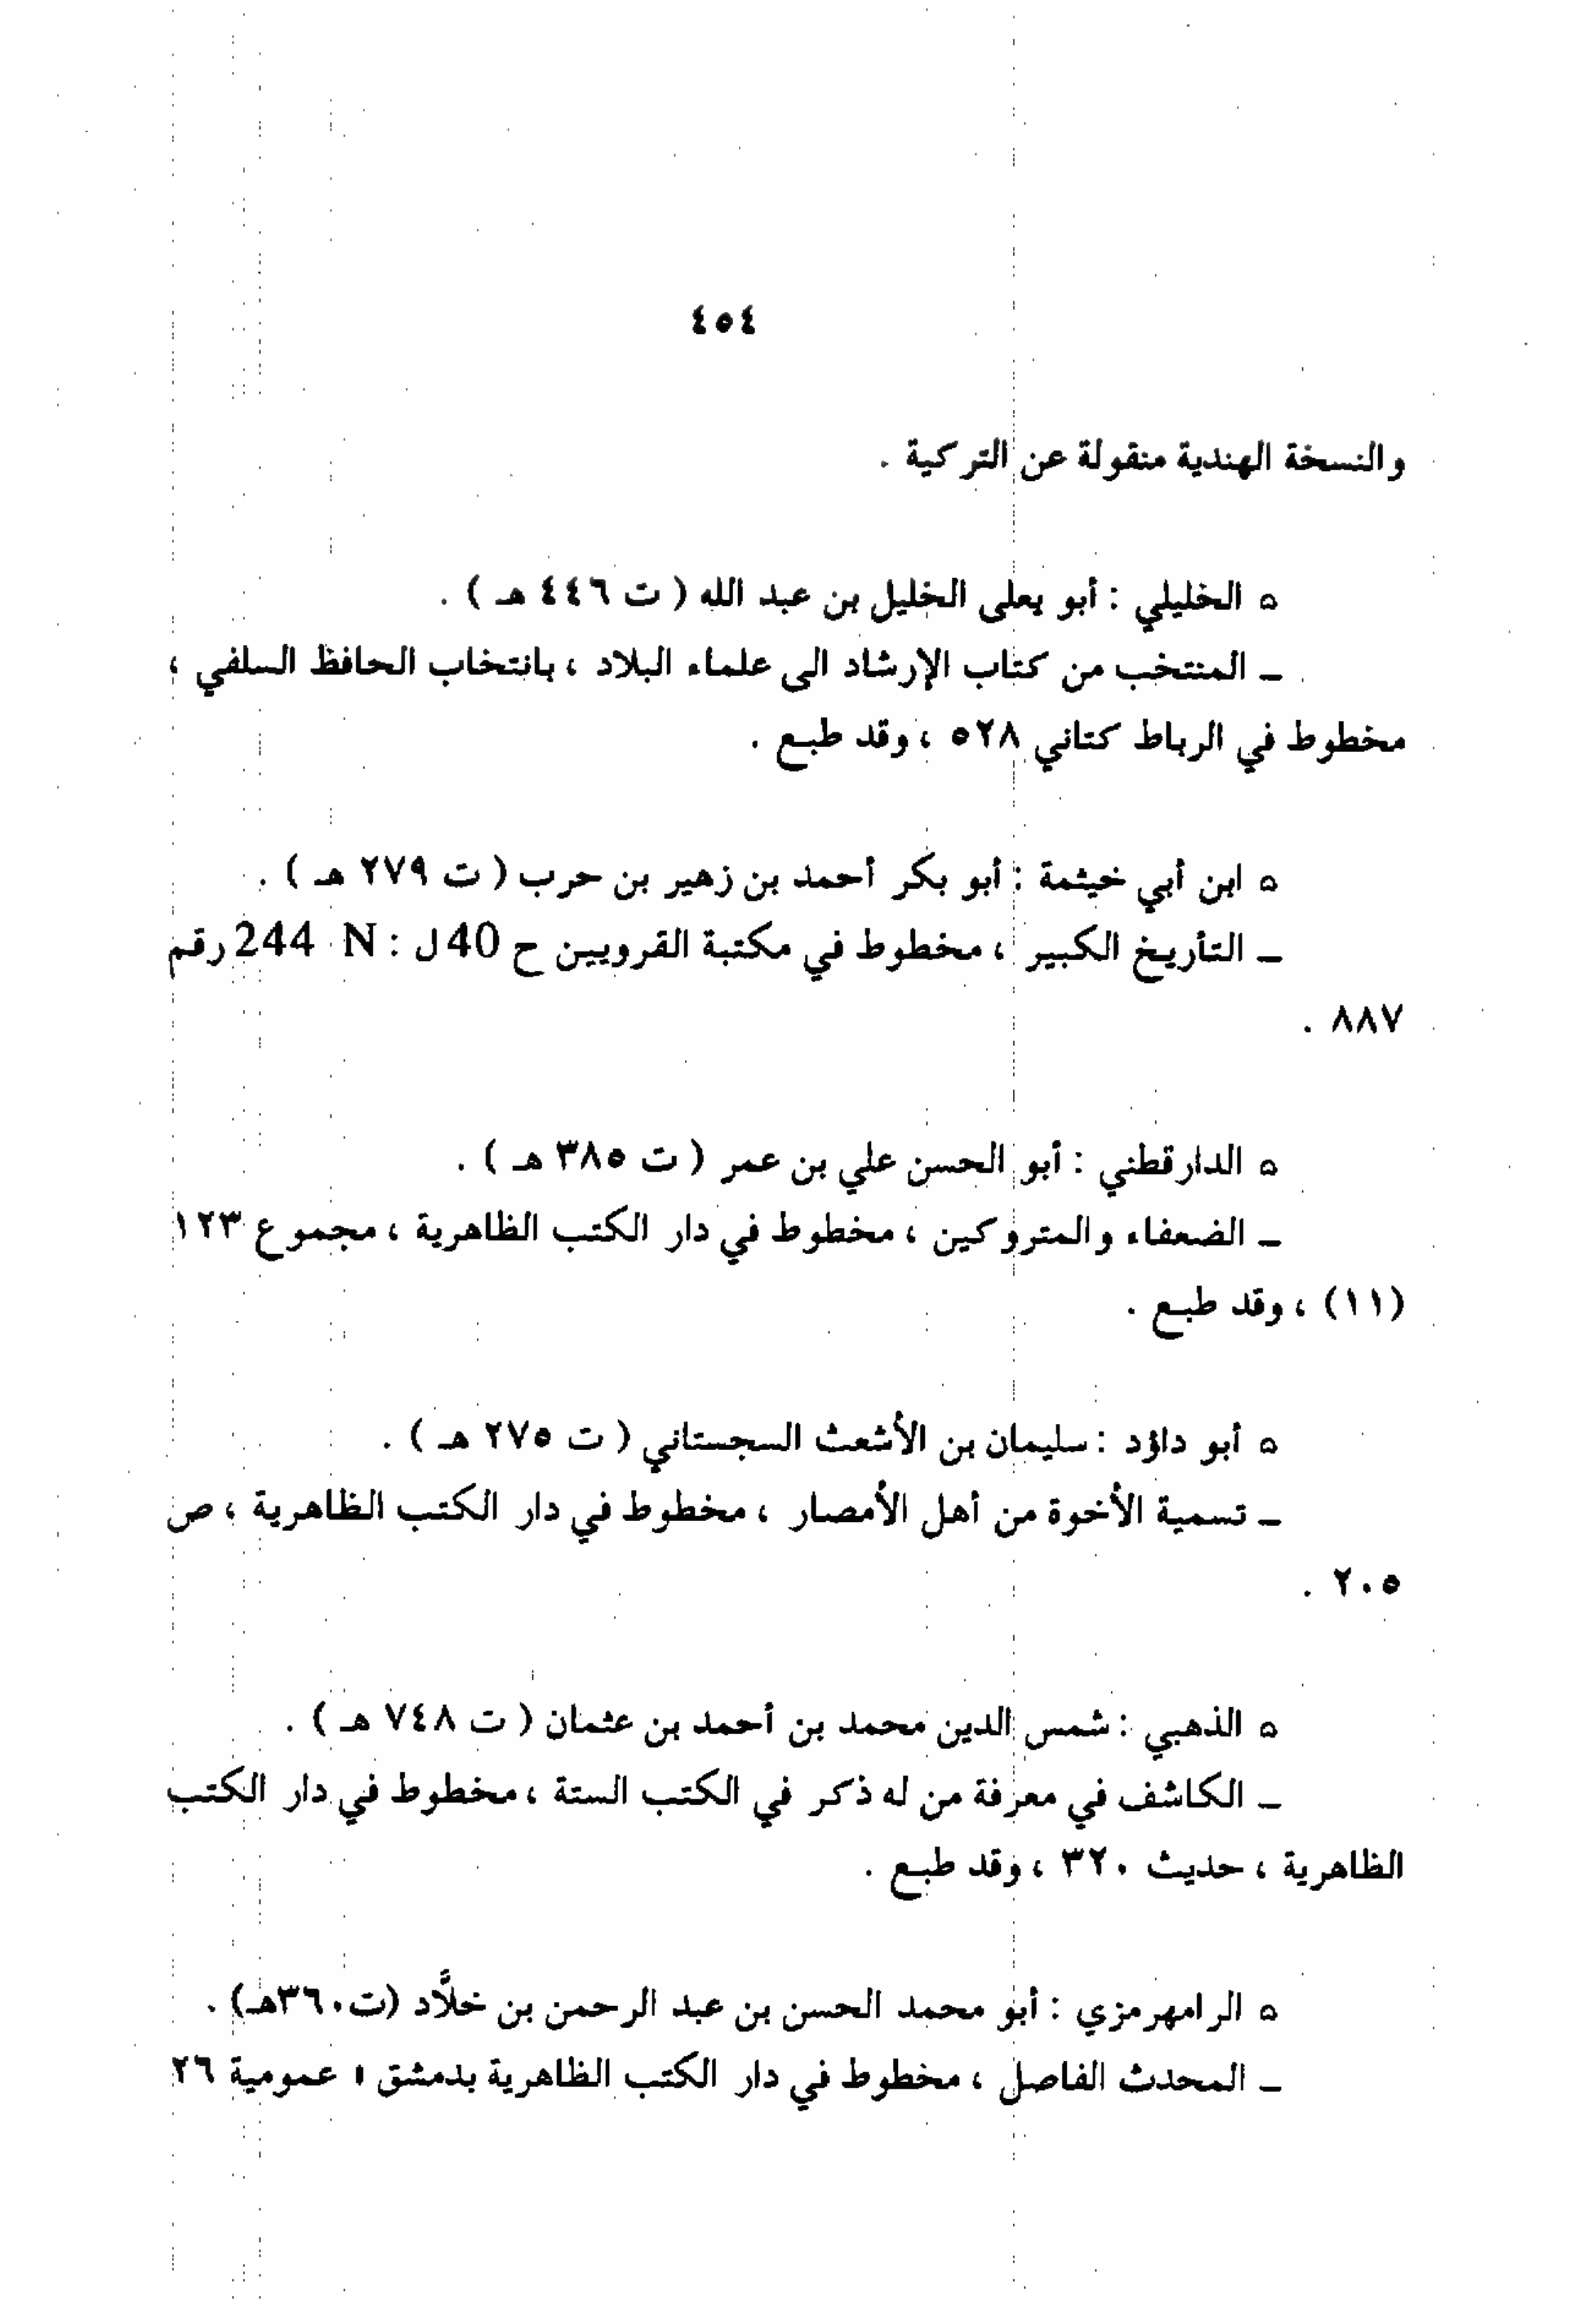 ٤٥٤
والنسخة الهندية منقولة عن التركية .
٥ الخليلي : أبو يعلى الخليل بن عبد الله ( ت ٤٤٦ هـ ) .
ـ المنتخب من كتاب الإرشاد الى علماء البلاد ، بانتخاب الحافظ السلفي ،
مخطوط في الرباط كتاني ٥٢٨ ، وقد طبع .
٥ ابن أبي خيثمة : أبو بكر أحمد بن زهير بن حرب ( ت ٢٧٩ هـ ) .
ـ التأريخ الكبير ، مخطوط في مكتبة القرويين ح 40 ل : N 244 رقم
٨٨٧ .
٥ الدارقطني : أبو الحسن علي بن عمر ( ت ٣٨٥ هـ ) .
ـ الضعفاء والمتروكين ، مخطوط في دار الكتب الظاهرية ، مجموع ١٢٣
(١١) ، وقد طبع .
٥ أبو داؤد : سليمان بن الأشعث السجستاني ( ت ٢٧٥ هـ ) .
ـ تسمية الأخوة من أهل الأمصار ، مخطوط في دار الكتب الظاهرية ، ص
٢٠٥ .
٥ الذهبي : شمس الدين محمد بن أحمد بن عثمان ( ت ٧٤٨ هـ ) .
ـ الكاشف في معرفة من له ذكر في الكتب الستة ، مخطوط في دار الكتب
الظاهرية ، حديث ٣٢٠ ، وقد طبع .
٥ الرامهرمزي : أبو محمد الحسن بن عبد الرحمن بن خلاَّد (ت٣٦٠هـ) .
ـ المحدث الفاصل ، مخطوط في دار الكتب الظاهرية بدمشق ، عمومية ٢٦